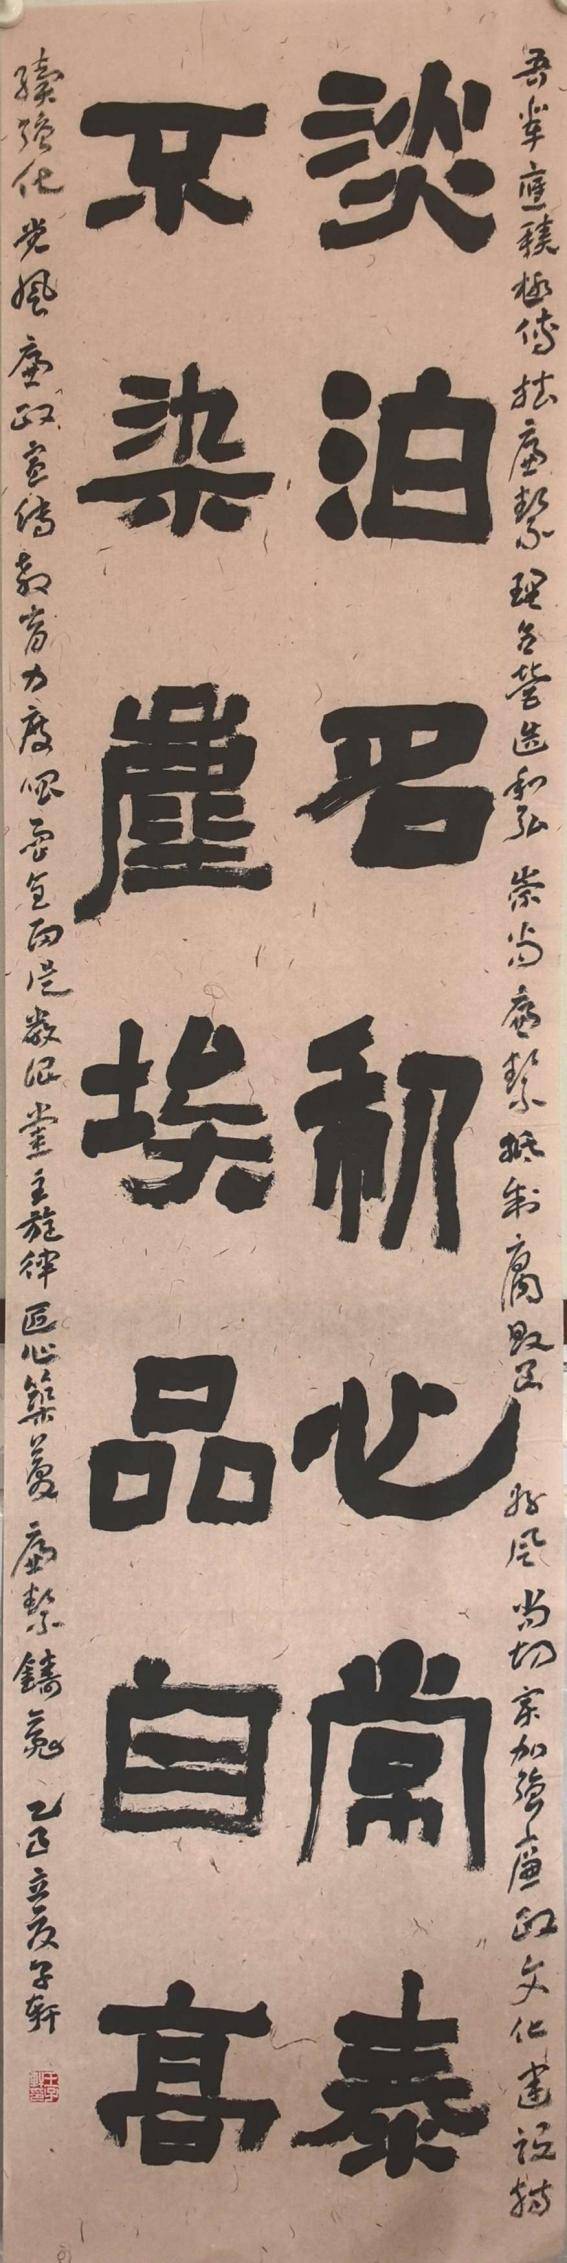 吾辈应积极传扬廉洁理念营造和弘崇尚廉洁抵制腐败
风尚切实加强廉政文化建设持
淡泊名利心常泰
不染尘埃品自高
续强化党风廉政宣传教育力度
主旋律匠心筑梦廉洁铸魂乙巳立夏子轩